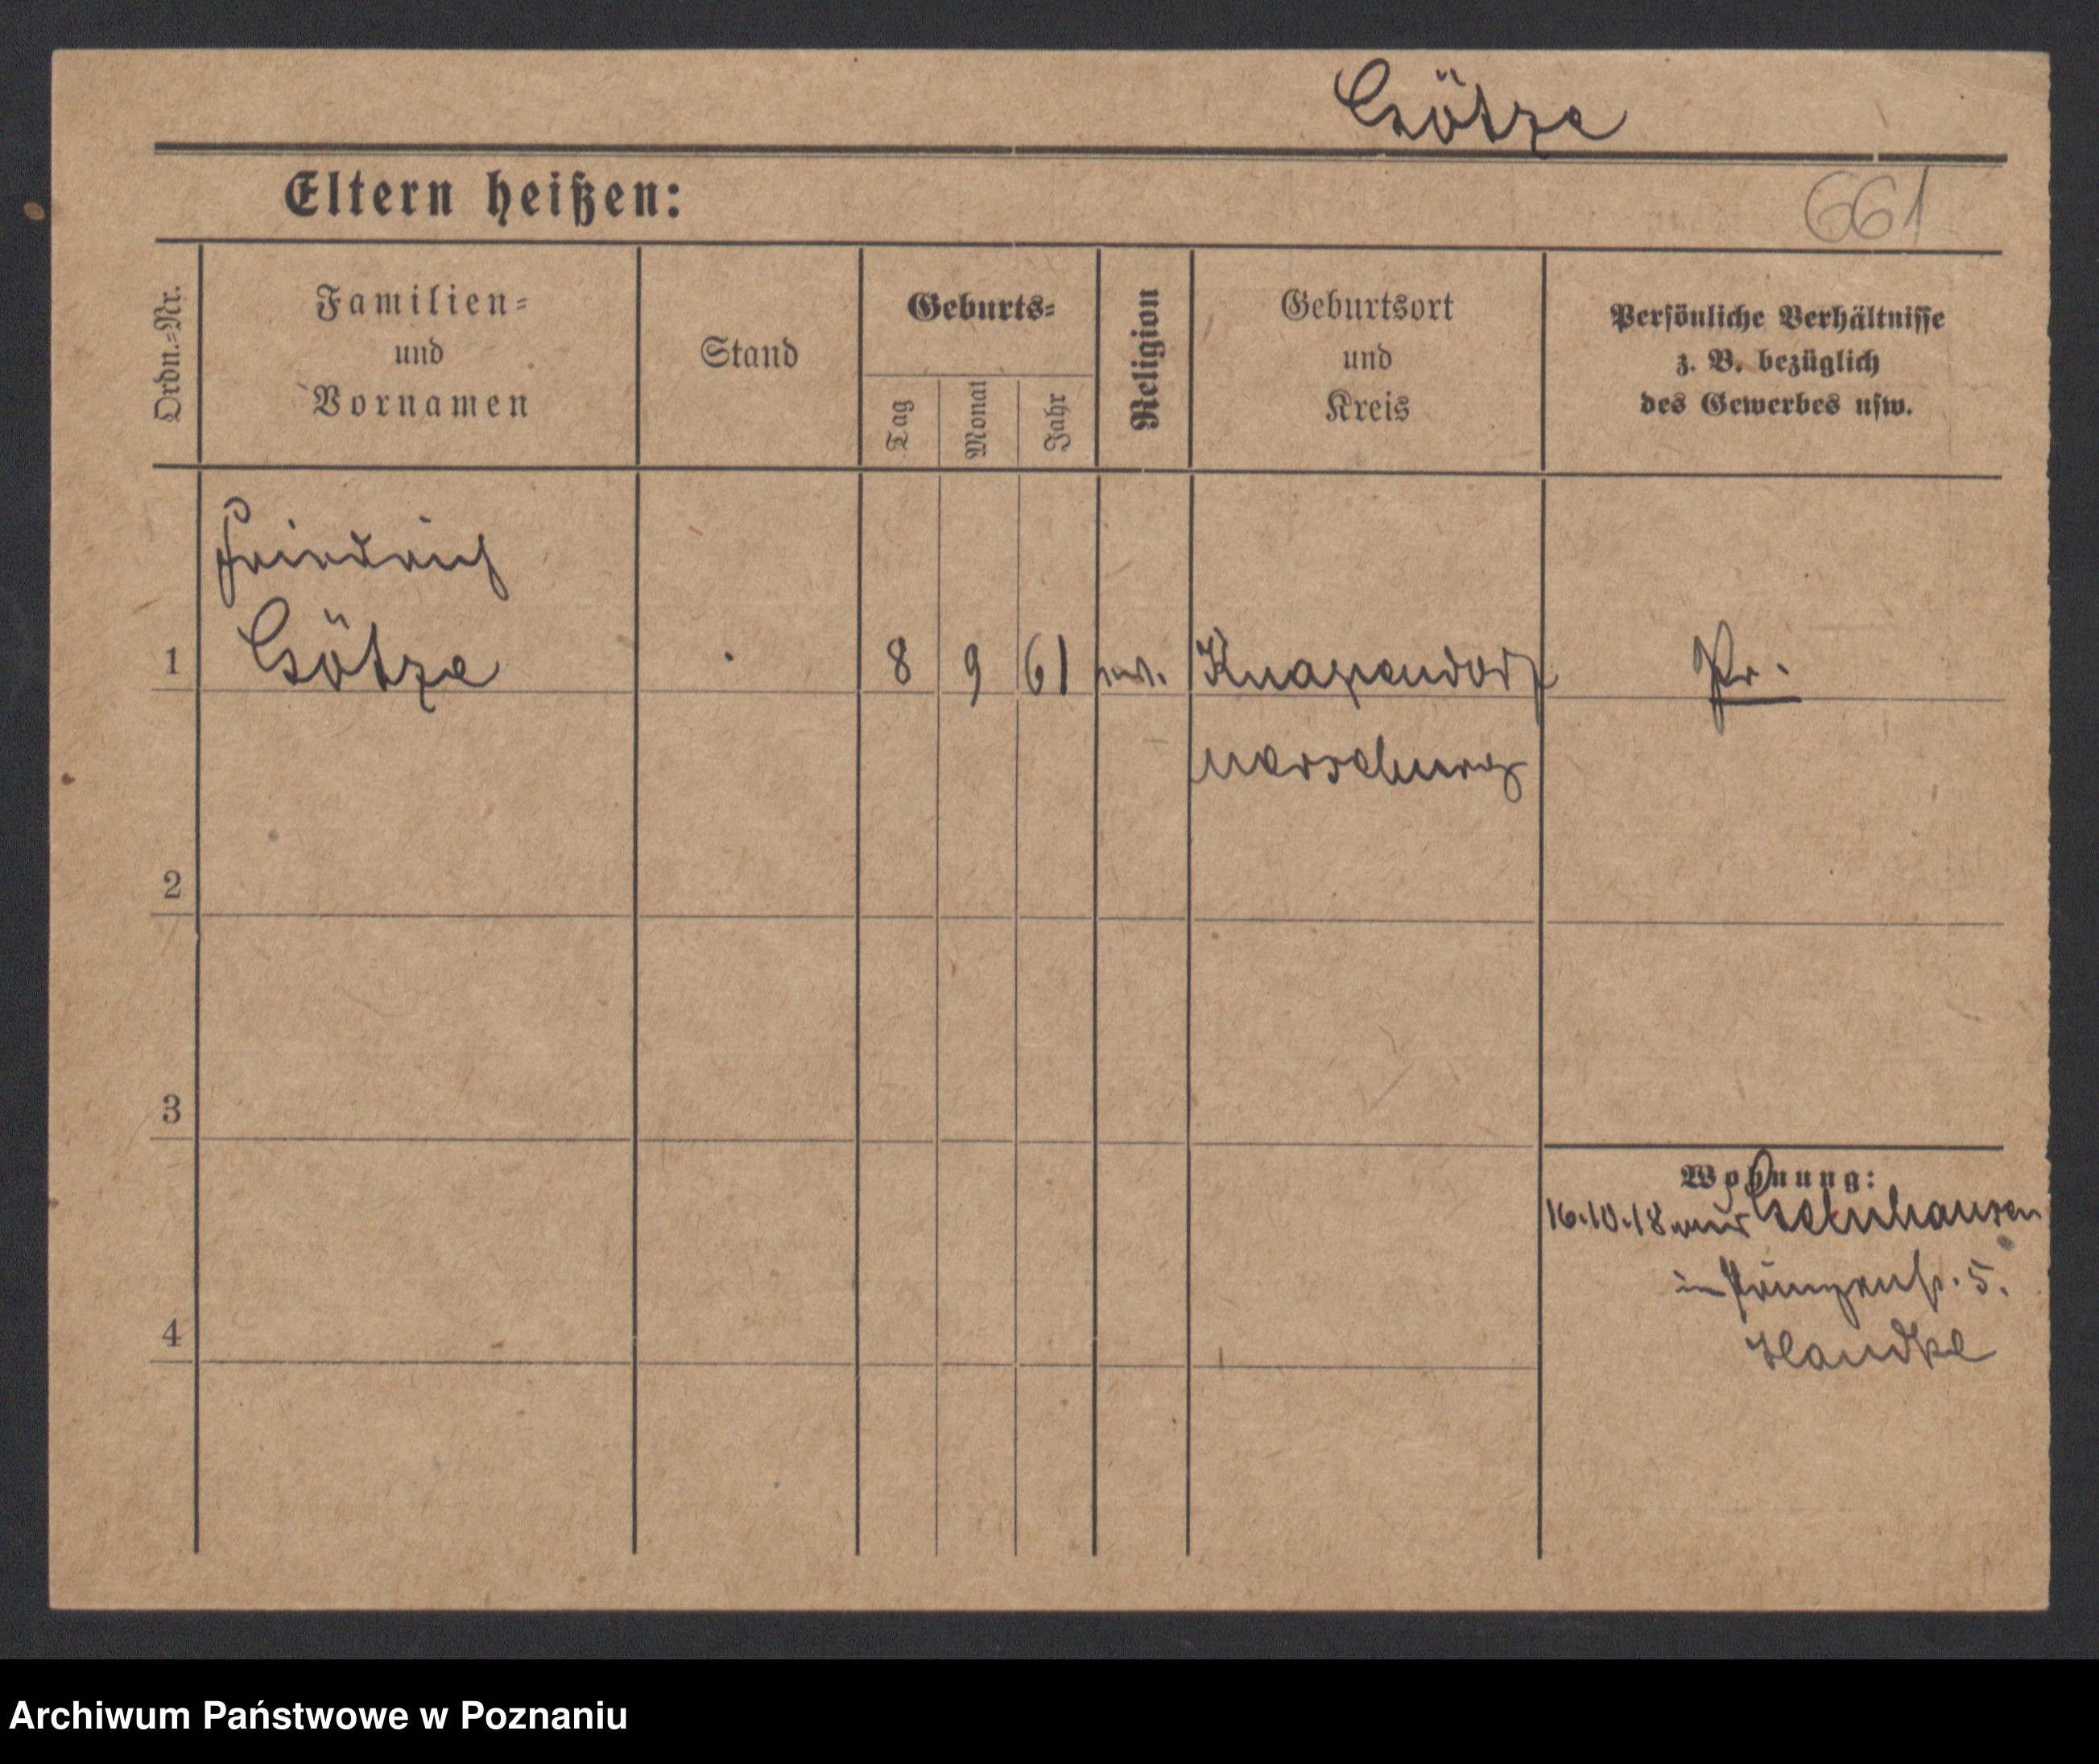 Götze
Eltern heißen:
661
Ordn.-Nr.
Familien-
und
Vornamen
Stand
Geburts-
Tag
Monat
Jahr
Religion
Geburtsort
und
Kreis
Persönliche Verhältnisse
z. B. bezüglich
des Gewerbes usw.
Friedrich
1 Götze 8 9 61 ev. Knapendorf Pr.
Merseburg
2
3
Wohnung:
16.10.18 aus Gelnhausen
in 5.
4 Handke
Archiwum Państwowe w Poznaniu